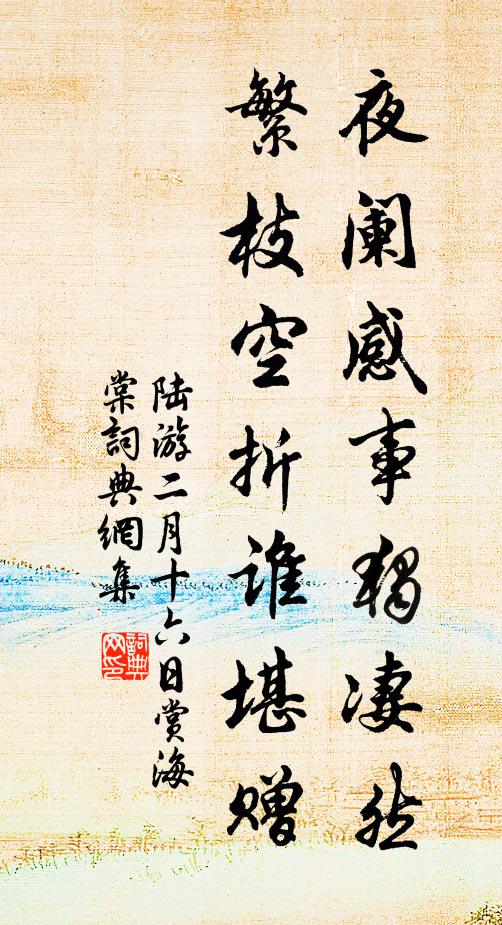 夜阑感事独凄然
繁枝空折谁堪赠
陆游二月十六日赏海
棠詞典網集
詞典
网印